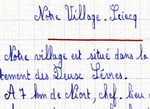 Notre Village. Sciecq
Notre village est situé dans la
tement des Deux Sèvres.
A 7 km de Niort, chef. lieu